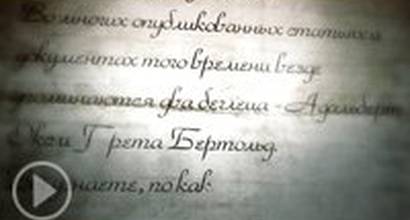 Во многих опубликованных статьях и
документах того времени везде
упоминаются два беглеца - Адальберт
и Грета Бертольд.
знаете, но как